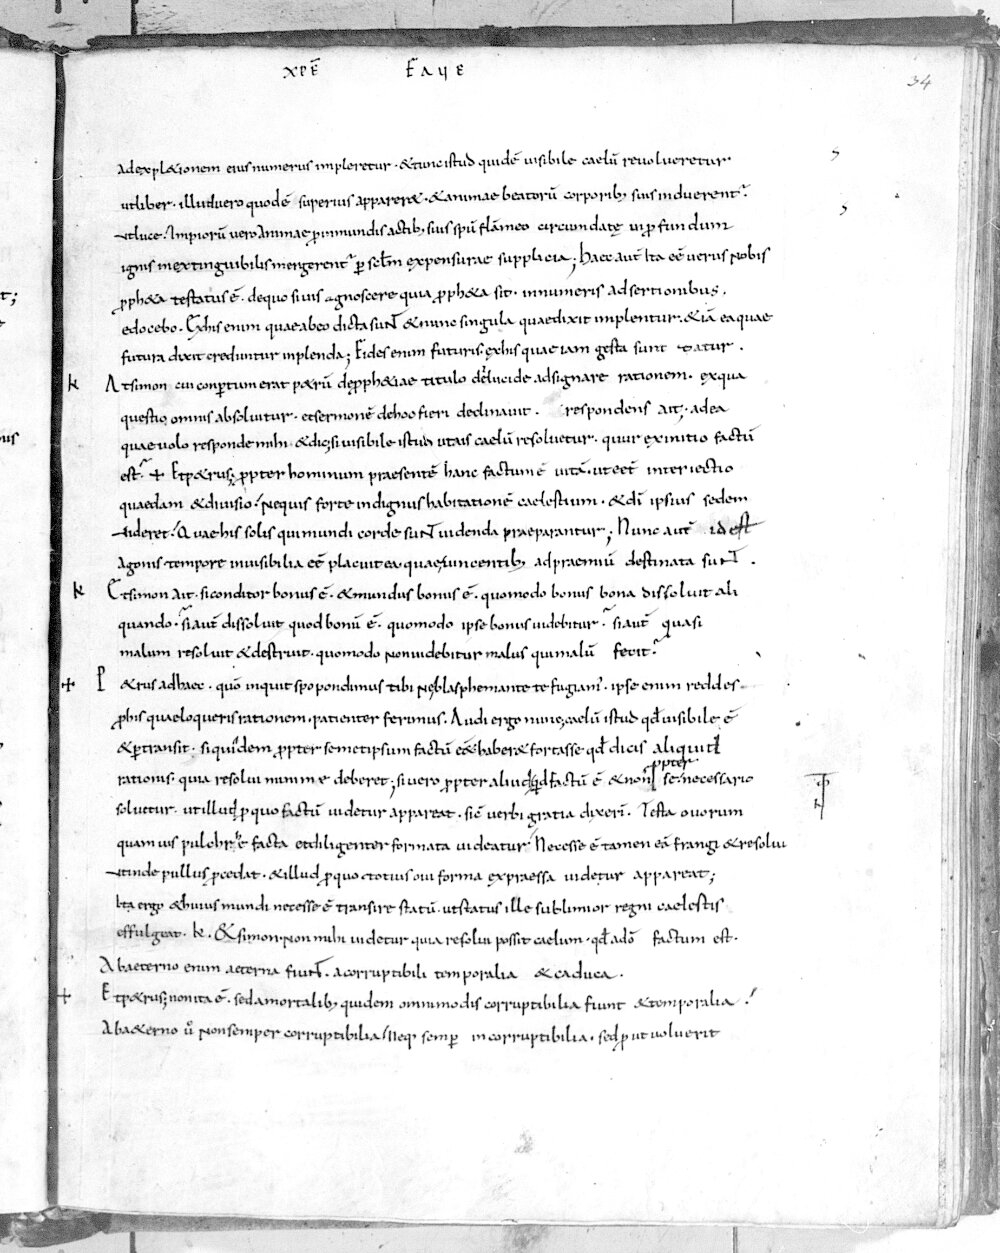 xpē faue
34
adexpl&ionem eius numerus impleretur · &tunc istud quidē uisibile caelū reuolueretur
utliber · illuduero quodē superius apparer& · &animae beatorū corporib; suis induerent᷑
utluce · Impiorū uero animae pinmundis actib; suis spū flāmeo circumdatę uip fundum
ignis inextinguibilis mergerent᷑ p sclm expensurae supplicia; haec aut̄ Ita eē uerus nobis
pph&a testatus ē · dequo siuis agnoscere quia pph&a sit · innumeris adsertionibus ·
edocebo · Exhis enim quae abeo dicta sunt &nunc singula quaedixit implentur · &iā ea quae
futura dixit creduntur inplenda; Fides enim futuris exhis quae iam gesta sunt datur ·
k Atsimon cui conptum erat p&rū de pph&iae titulo delucide adsignare rationem · exqua
questio omnis absoluitur · etsermonē dehoc fieri declinauit · respondens ait; adea
quae uolo responde mihi · &dic; si uisibile istud utais caelū resoluetur · quur exinitio factū
est᷑ + Etp&rus; ppter hominum praesentē hanc factum ē uitā · ut eēt interiectio
quaedam &diuisio · Nequis forte indignus habitationē caelestium · &dī ipsius sedem
uideret · Quae his solis qui mundi corde sunt uidenda praeparantur; Nunc aut̄ id est
agonis tempore inuisibilia eē placuit ea quae uincentib; adpraemiū destinata sunt ·
k Etsimon ait · si conditor bonus ē · &mundus bonus ē · quomodo bonus bona dissoluit ali
quando · si aut̄ dissoluit quod bonū ē · quomodo ipse bonus uidebitur · si aut̄ quasi
malum resoluit &destruit · quomodo non uidebitur malus qui malū fecit᷑
+ P &rus adhaec · quō inquit spopondimus tibi neblasphemante te fugiam᷑ · ipse enim reddes
phis quae loqueris rationem · patienter ferimus · Audi ergo nunc; caelū istud qđ uisibile ē
&ptransit · si quidem ppter semetipsum factū eē& haber& fortasse qđ dicis aliquid
rationis · quia resolui minime deberet; siuero ppter aliud factū ē &non ppter se · necessario
soluetur · ut illud p quo factū uidetur appareat · sic uerbi gratia dixeri · Testa ouorum
quam uis pulchre facta etdiligenter formata uideatur Necesse ē tamen eā frangi &resolui
utinde pullus pcedat · &illud p quo totius oui forma expraessa uidetur appareat;
Ita ergo &huius mundi necesse ē transire statū · utstatus ille sublimior regni caelestis
effulgeat · k · &simon Non mihi uidetur quia resolui possit caelum · qđ adō factum est ·
Abaeterno enim aeterna fiunt · acorruptibili temporalia &caduca ·
+ Etp&rus; non ita ē · sed amortalib; quidem omnimodis corruptibilia fiunt &temporalia
Aba&erno u̅ Non semper corruptibilia Neq; semp incorruptibilia · sed put uoluerit